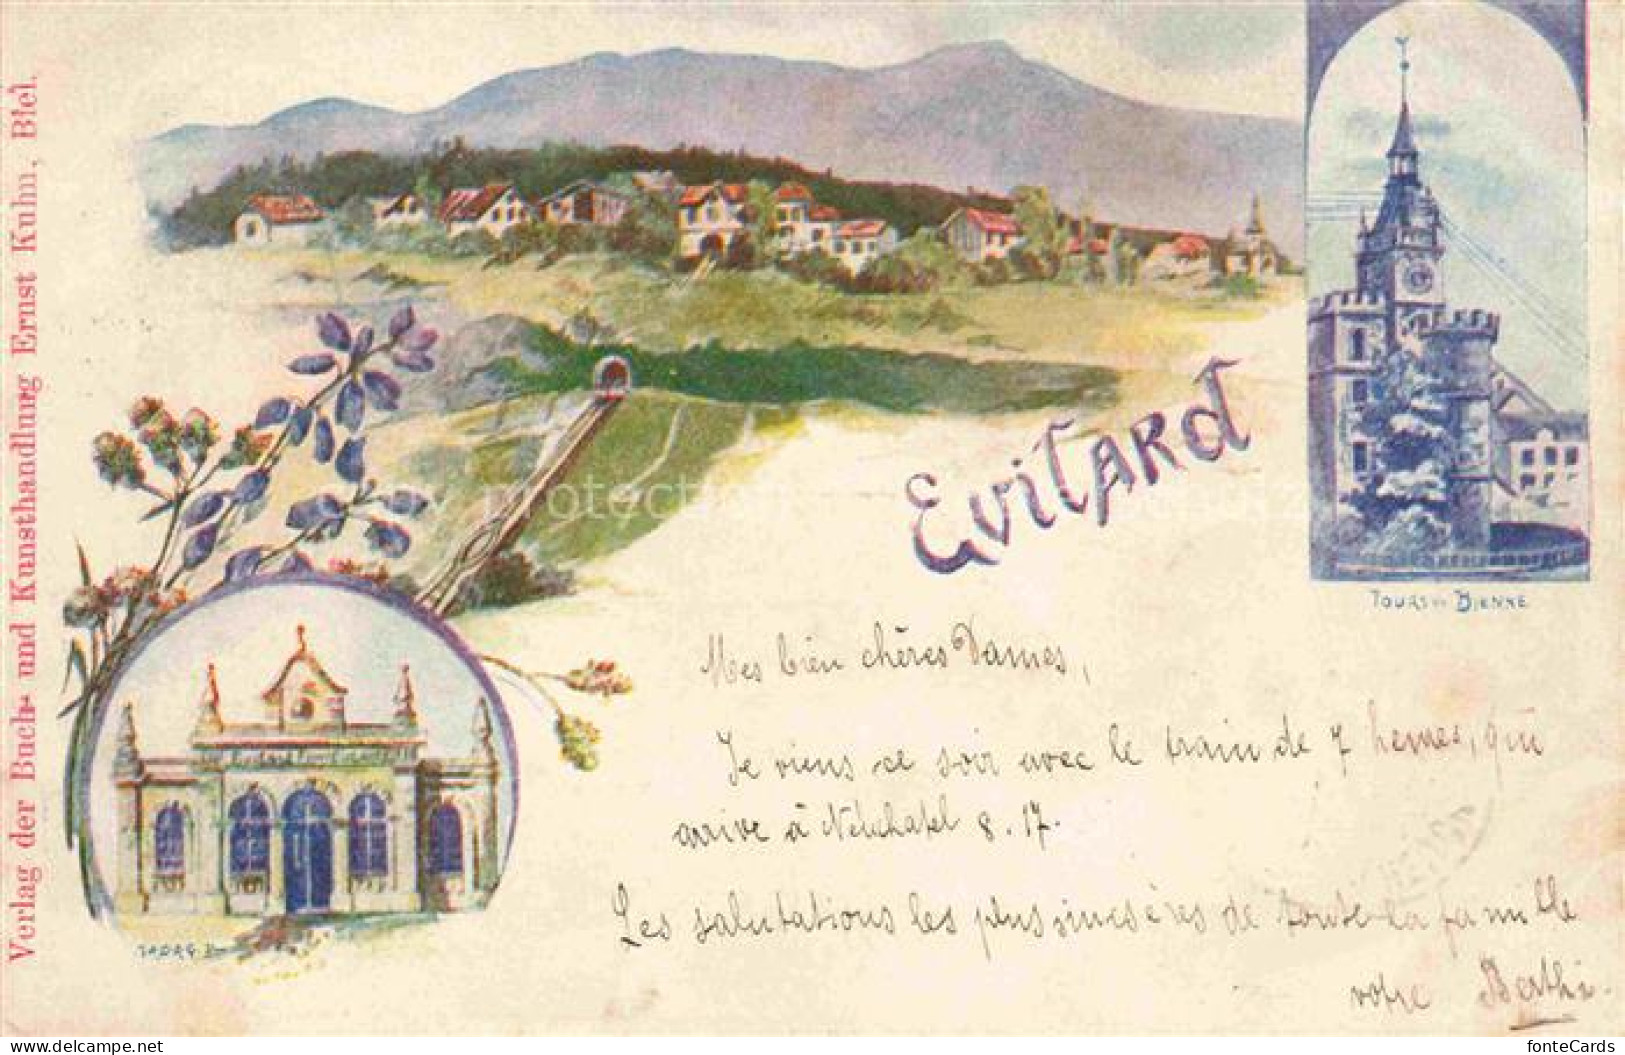 Verlag der Buch- und Kunsthandlung Ernst Kuhn, Biel.
EviTARd
TOURS DE BIENNE
Mes bien chères Dames,
Je viens ce soir avec le train de 7 heures, qui
arrive à Neuchatel 8.17.
Les salutations les plus sincsères de toute la famille
votre Berthi.
fonteCards